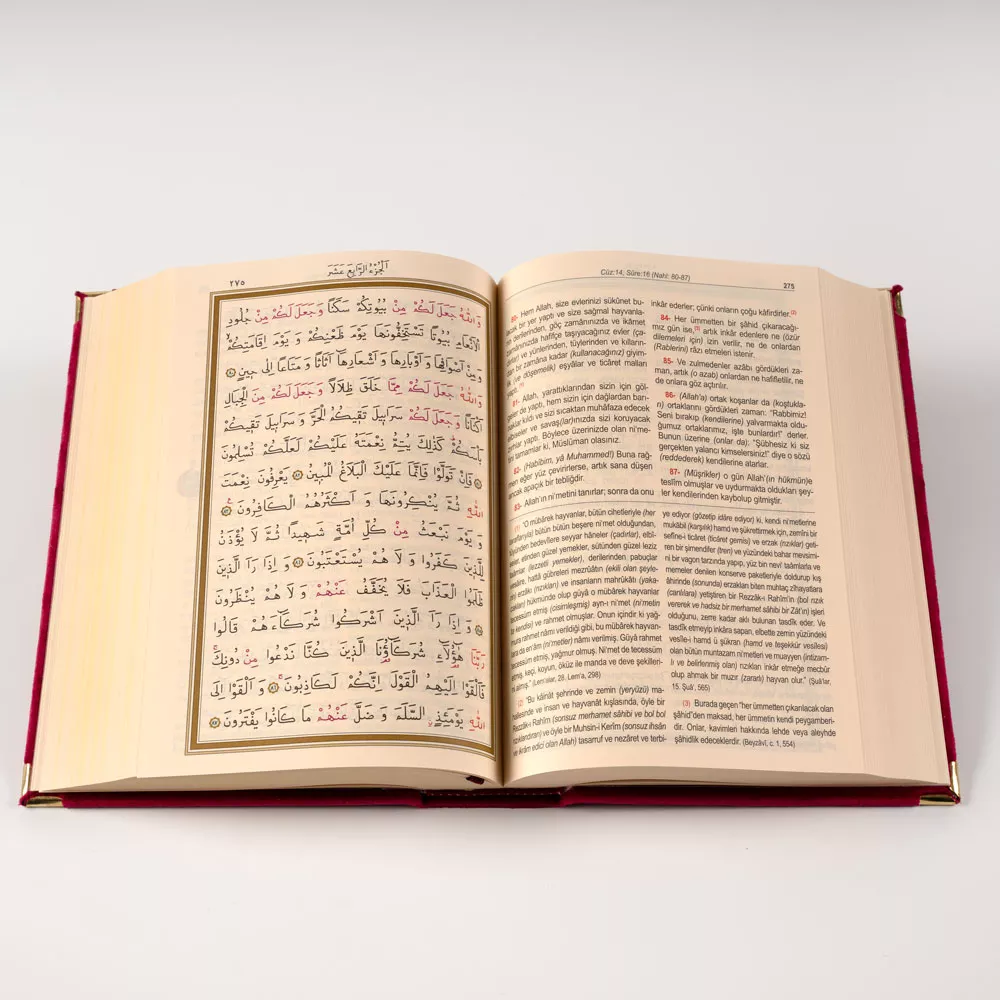 اَلْجُزْءُ الرَّابِعَ عَشَرَ
٢٧٥
وَاللّٰهُ جَعَلَ لَكُمْ مِنْ بُيُوتِكُمْ سَكَنًا وَجَعَلَ لَكُمْ مِنْ جُلُودِ
الْاَنْعَامِ بُيُوتًا تَسْتَخِفُّونَهَا يَوْمَ ظَعْنِكُمْ وَ يَوْمَ اِقَامَتِكُمْۙ
وَمِنْ اَصْوَافِهَا وَ اَوْبَارِهَا وَ اَشْعَارِهَا اَثَاثًا وَ مَتَاعًا اِلٰى حٖينٍ ﴿٨٠﴾
وَاللّٰهُ جَعَلَ لَكُمْ مِمَّا خَلَقَ ظِلَالًا وَجَعَلَ لَكُمْ مِنَ الْجِبَالِ
اَكْنَانًا وَجَعَلَ لَكُمْ سَرَابٖيلَ تَقٖيكُمُ الْحَرَّ وَ سَرَابٖيلَ تَقٖيكُمْ
بَاْسَكُمْ كَذٰلِكَ يُتِمُّ نِعْمَتَهُ عَلَيْكُمْ لَعَلَّكُمْ تُسْلِمُونَ
﴿٨١﴾ فَاِنْ تَوَلَّوْا فَاِنَّمَا عَلَيْكَ الْبَلَاغُ الْمُبٖينُ ﴿٨٢﴾ يَعْرِفُونَ نِعْمَتَ
اللّٰهِ ثُمَّ يُنْكِرُونَهَا وَ اَكْثَرُهُمُ الْكَافِرُونَ ﴿٨٣﴾
وَ يَوْمَ نَبْعَثُ مِنْ كُلِّ اُمَّةٍ شَهٖيدًا ثُمَّ لَا يُؤْذَنُ
لِلَّذٖينَ كَفَرُوا وَ لَا هُمْ يُسْتَعْتَبُونَ ﴿٨٤﴾ وَ اِذَا رَاَ الَّذٖينَ
ظَلَمُوا الْعَذَابَ فَلَا يُخَفَّفُ عَنْهُمْ وَ لَا هُمْ يُنْظَرُونَ
﴿٨٥﴾ وَ اِذَا رَاَ الَّذٖينَ اَشْرَكُوا شُرَكَٓاءَهُمْ قَالُوا
رَبَّنَا هٰٓؤُلَٓاءِ شُرَكَٓاؤُنَا الَّذٖينَ كُنَّا نَدْعُوا مِنْ دُونِكَۚ
فَاَلْقَوْا اِلَيْهِمُ الْقَوْلَ اِنَّكُمْ لَكَاذِبُونَ ﴿٨٦﴾ وَ اَلْقَوْا اِلَى
اللّٰهِ يَوْمَئِذٍ السَّلَمَ وَ ضَلَّ عَنْهُمْ مَا كَانُوا يَفْتَرُونَ ﴿٨٧﴾
Cüz:14; Sûre:16 (Nahl: 80-87)
275
80- Hem Allah, size evlerinizi sükûnet bu-
acak bir yer yaptı ve size sağmal hayvanla-
n derilerinden, göç zamânınızda ve ikâmet
zamânınızda hafifçe taşıyacağınız evler (ça-
rlar) ve yünlerinden, tüylerinden ve kılların-
dan bir zamâna kadar (kullanacağınız) giyim-
ik (ve döşemelik) eşyâlar ve ticâret malları
aptı. (1)
81- Allah, yarattıklarından sizin için göl-
geler de yaptı, hem sizin için dağlardan barı-
aklar kıldı ve sizi sıcaktan muhâfaza edecek
elbiseler ve savaş(lar)ınızda sizi koruyacak
ırhlar yaptı. Böylece üzerinizde olan ni'me-
ni tamamlar ki, Müslüman olasınız.
82- (Habîbim, yâ Muhammed!) Buna rağ-
men eğer yüz çevirirlerse, artık sana düşen
ancak apaçık bir tebliğdir.
83- Allah'ın ni'metini tanırlar; sonra da onu
inkâr ederler; çünki onların çoğu kâfirdirler.(2)
84- Her ümmetten bir şâhid çıkaracağı-
mız gün ise,(3) artık inkâr edenlere ne (özür
dilemeleri için) izin verilir, ne de onlardan
(Rablerini) râzı etmeleri istenir.
85- Ve zulmedenler azâbı gördükleri za-
man, artık (o azab) onlardan ne hafifletilir, ne
de onlara göz açtırılır.
86- (Allah'a) ortak koşanlar da (koştukla-
rı) ortaklarını gördükleri zaman: “Rabbimiz!
Seni bırakıp (kendilerine) yalvarmakta oldu-
ğumuz ortaklarımız, işte bunlardır!” derler.
Bunun üzerine (onlar da); “Şübhesiz ki siz
gerçekten yalancı kimselersiniz!” diye o sözü
(reddederek) kendilerine atarlar.
87- (Müşrikler) o gün Allah'(ın hükmün)e
teslîm olmuşlar ve uydurmakta oldukları şey-
ler kendilerinden kaybolup gitmiştir.
(1) “O mübârek hayvanlar, bütün cihetleriyle (her
taraflarıyla) bütün bütün beşere ni'met olduğundan,
tüyünden bedevîlere seyyar hâneler (çadırlar), elbi-
seler, etinden güzel yemekler, sütünden güzel leziz
taamlar (lezzetli yemekler), derilerinden pabuçlar
vesâire, hattâ gübreleri mezrûâtın (ekili olan şeyle-
rin) erzakları (rızıkları) ve insanların mahrûkâtı (yaka-
cağı) hükmünde olup gûyâ o mübârek hayvanlar
tecessüm etmiş (cisimleşmiş) ayn-ı ni'met (ni'metin
tâ kendisi) ve rahmet olmuşlar. Onun içindir ki yağ-
mura rahmet nâmı verildiği gibi, bu mübârek hayvan-
lara da en'âm (ni'metler) nâmı verilmiş. Gûyâ rahmet
tecessüm etmiş, yağmur olmuş. Ni'met de tecessüm
etmiş, keçi, koyun, öküz ile manda ve deve şekilleri-
ni almış.” (Lem'alar, 28. Lem'a, 298)
(2) “Bu kâinât şehrinde ve zemin (yeryüzü) ma-
hallesinde ve insan ve hayvanât kışlasında, öyle bir
Rezzâk-ı Rahîm (sonsuz merhamet sâhibi ve bol bol
rızıklandıran) ve öyle bir Muhsin-i Kerîm (sonsuz ihsân
ve ikrâm edici olan Allah) tasarruf ve nezâret ve terbi-
ye ediyor (gözetip idâre ediyor) ki, kendi ni'metlerine
mukābil (karşılık) hamd ve şükrettirmek için, zemîni bir
sefîne-i ticâret (ticâret gemisi) ve erzak (rızıklar) geti-
ren bir şimendifer (tren) ve yüzündeki bahar mevsimi-
ni bir vagon tarzında yapıp, yüz bin nevi' taamlarla ve
memeler denilen konserve paketleriyle doldurup kış
âhirinde (sonunda) erzakları biten muhtaç zîhayatlara
(canlılara) yetiştiren bir Rezzâk-ı Rahîm'in (bol rızık
vererek ve hadsiz bir merhamet sâhibi bir Zât'ın) işleri
olduğunu, zerre kadar aklı bulunan tasdîk eder. Ve
tasdîk etmeyip inkâra sapan, elbette zemin yüzündeki
vesîle-i hamd ü şükran (hamd ve teşekkür vesîlesi)
olan bütün muntazam ni'metleri ve muayyen (intizam-
lı ve belirlenmiş olan) rızıkları inkâr etmeğe mecbûr
olup ahmak bir muzır (zararlı) hayvan olur.” (Şuâ'lar,
15. Şuâ', 565)
(3) Burada geçen “her ümmetten çıkarılacak olan
şâhid”den maksad, her ümmetin kendi peygamberi-
dir. Onlar, kavimleri hakkında lehde veya aleyhde
şâhidlik edeceklerdir. (Beyzâvî, c: 1, 554)